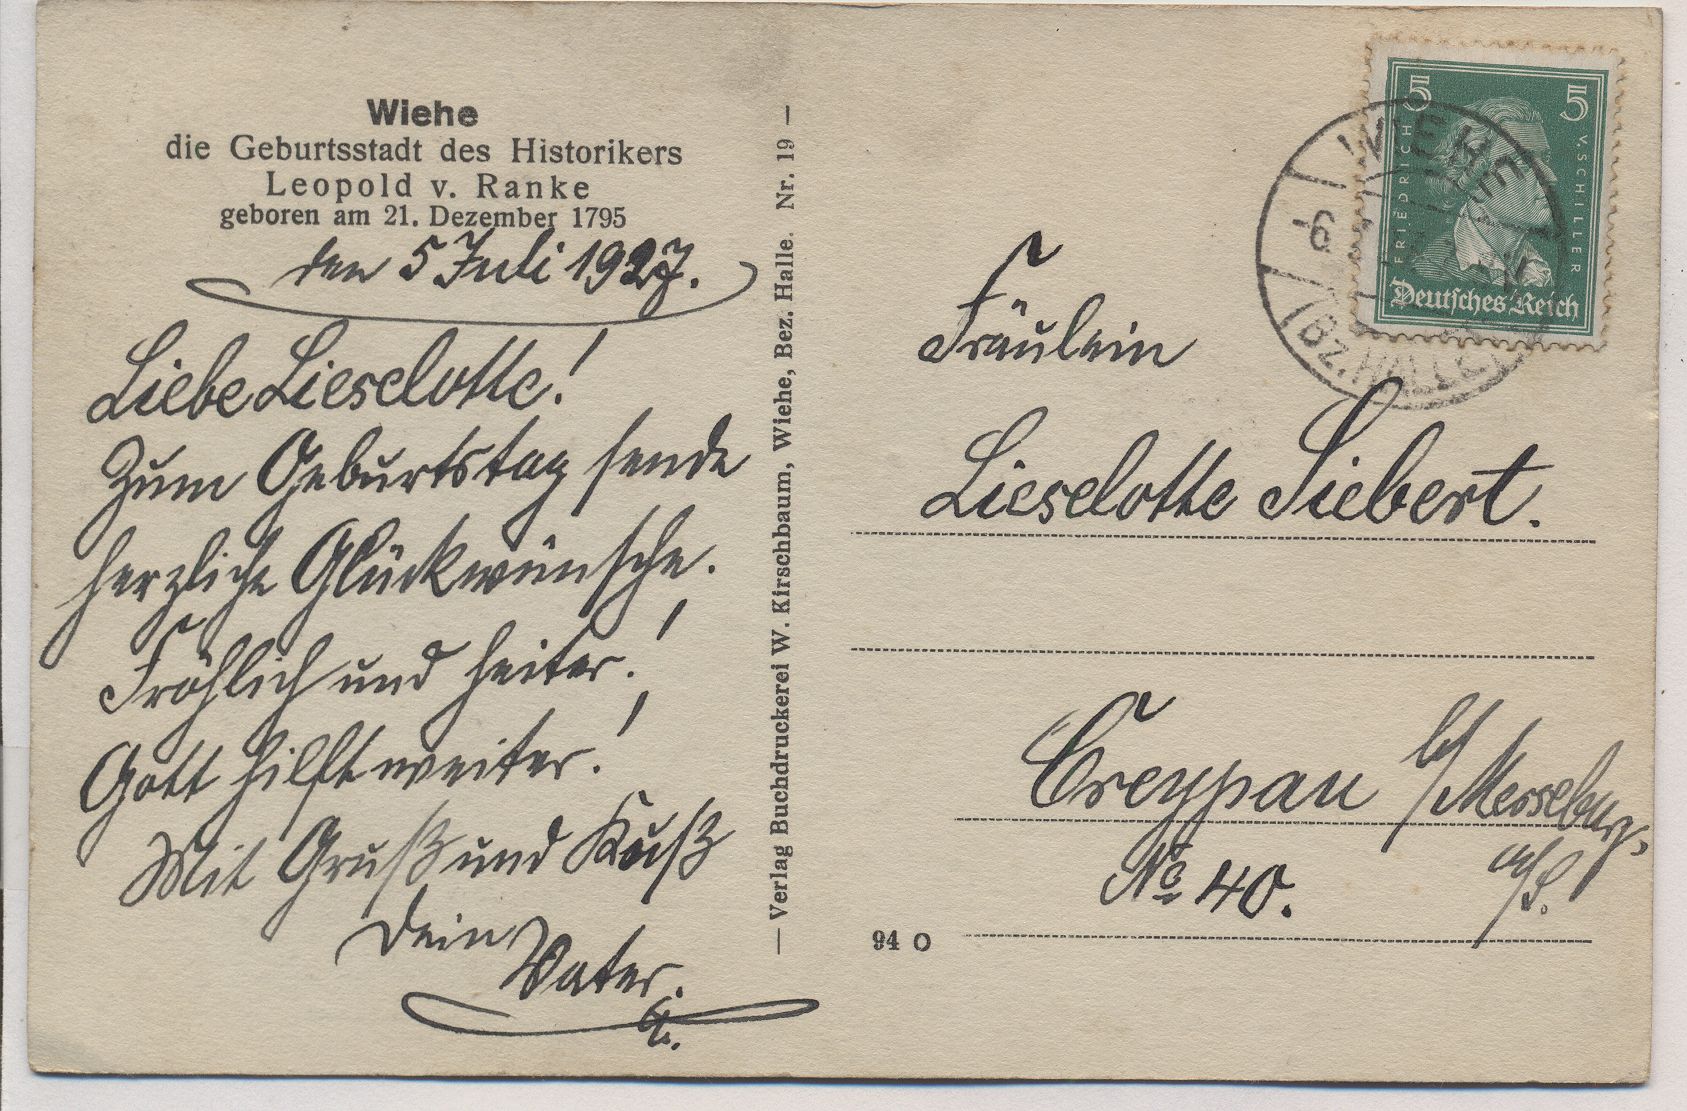 Wiehe
die Geburtsstadt des Historikers
Leopold v. Ranke
geboren am 21. Dezember 1795
den 5 Juli 1927.
Liebe Lieselotte!
Zum Geburtstag sende
herzliche Glückwünsche.
Fröhlich und heiter!
Gott hilft weiter!
Mit Gruß und Kuß
Dein
Vater.
— Verlag Buchdruckerei W. Kirschbaum, Wiehe, Bez. Halle. Nr. 19 —
5 5
FRIEDRICH V. SCHILLER
Deutsches Reich
WIEHE
-6.
(BZ. HALLE)
Fräulein
Lieselotte Siebert.
Creypau b/Merseburg,
a/S.
No 40.
94 O